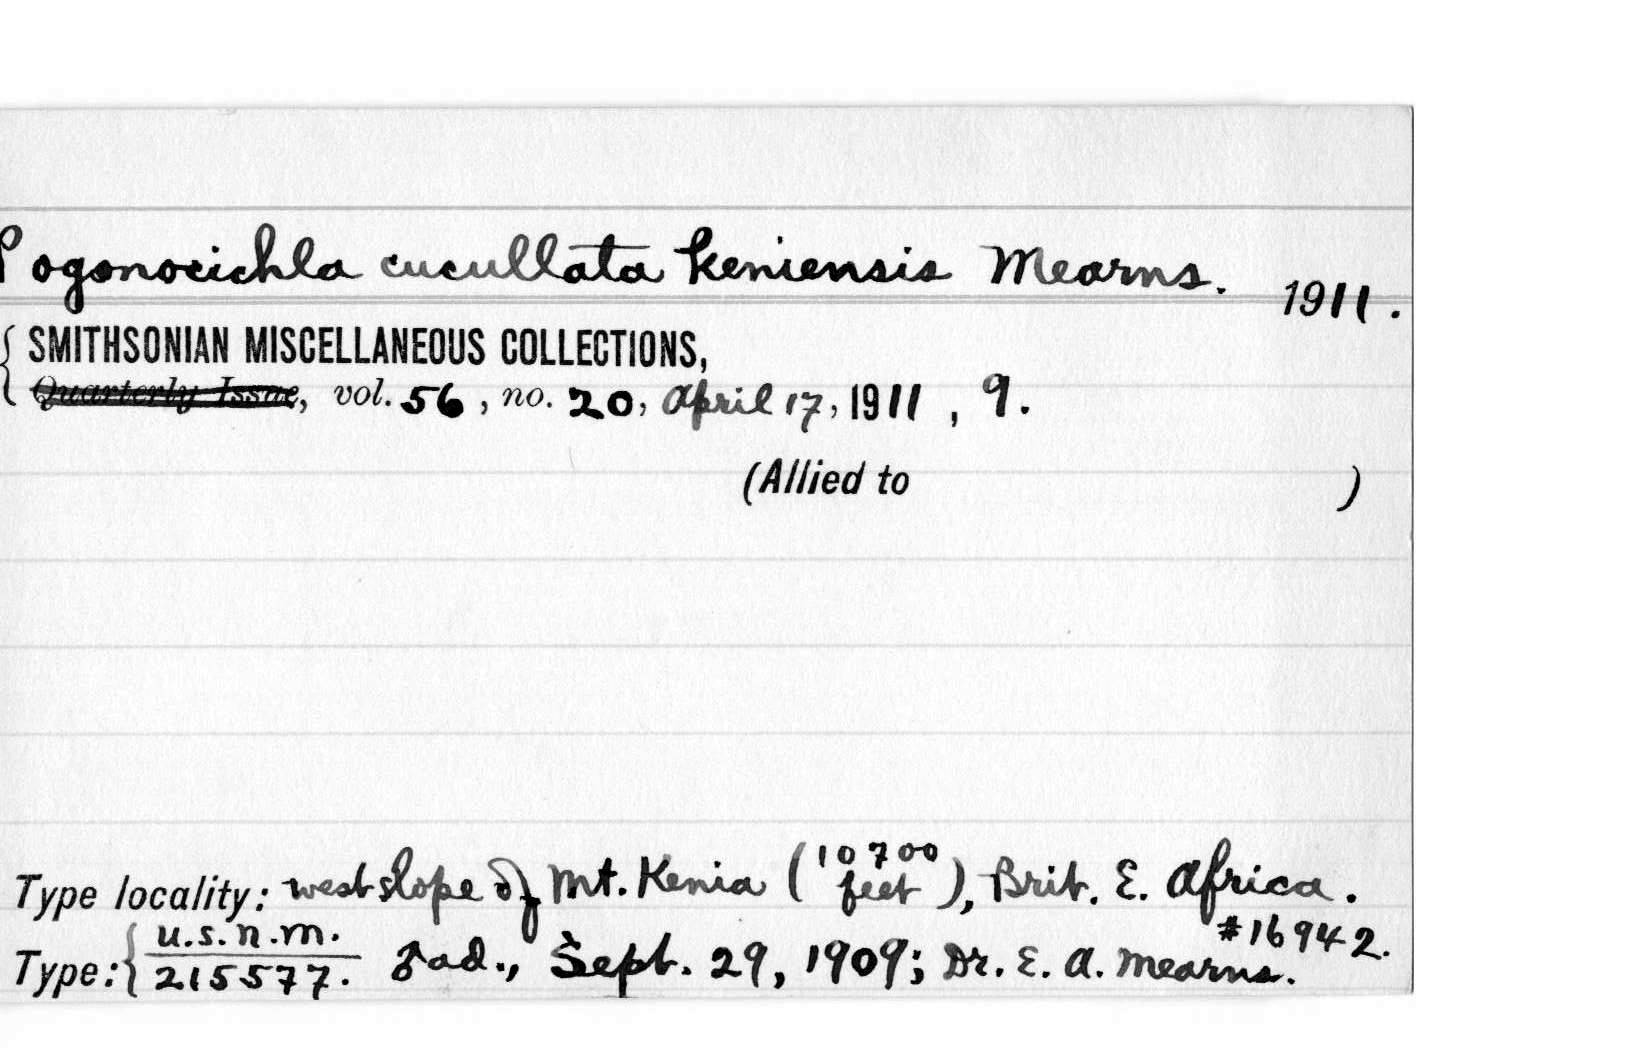 Pogonocichla cucullata keniensis Mearns.
1911.
SMITHSONIAN MISCELLANEOUS COLLECTIONS,
Quarterly Issue, vol. 56, no. 20, April 17, 1911, 9.
(Allied to )
Type locality: west slope of Mt. Kenia (10700 feet), Brit. E. Africa.
#16942.
Type: { U.S.N.M. 215577. ♂ ad., Sept. 29, 1909; Dr. E. A. Mearns.